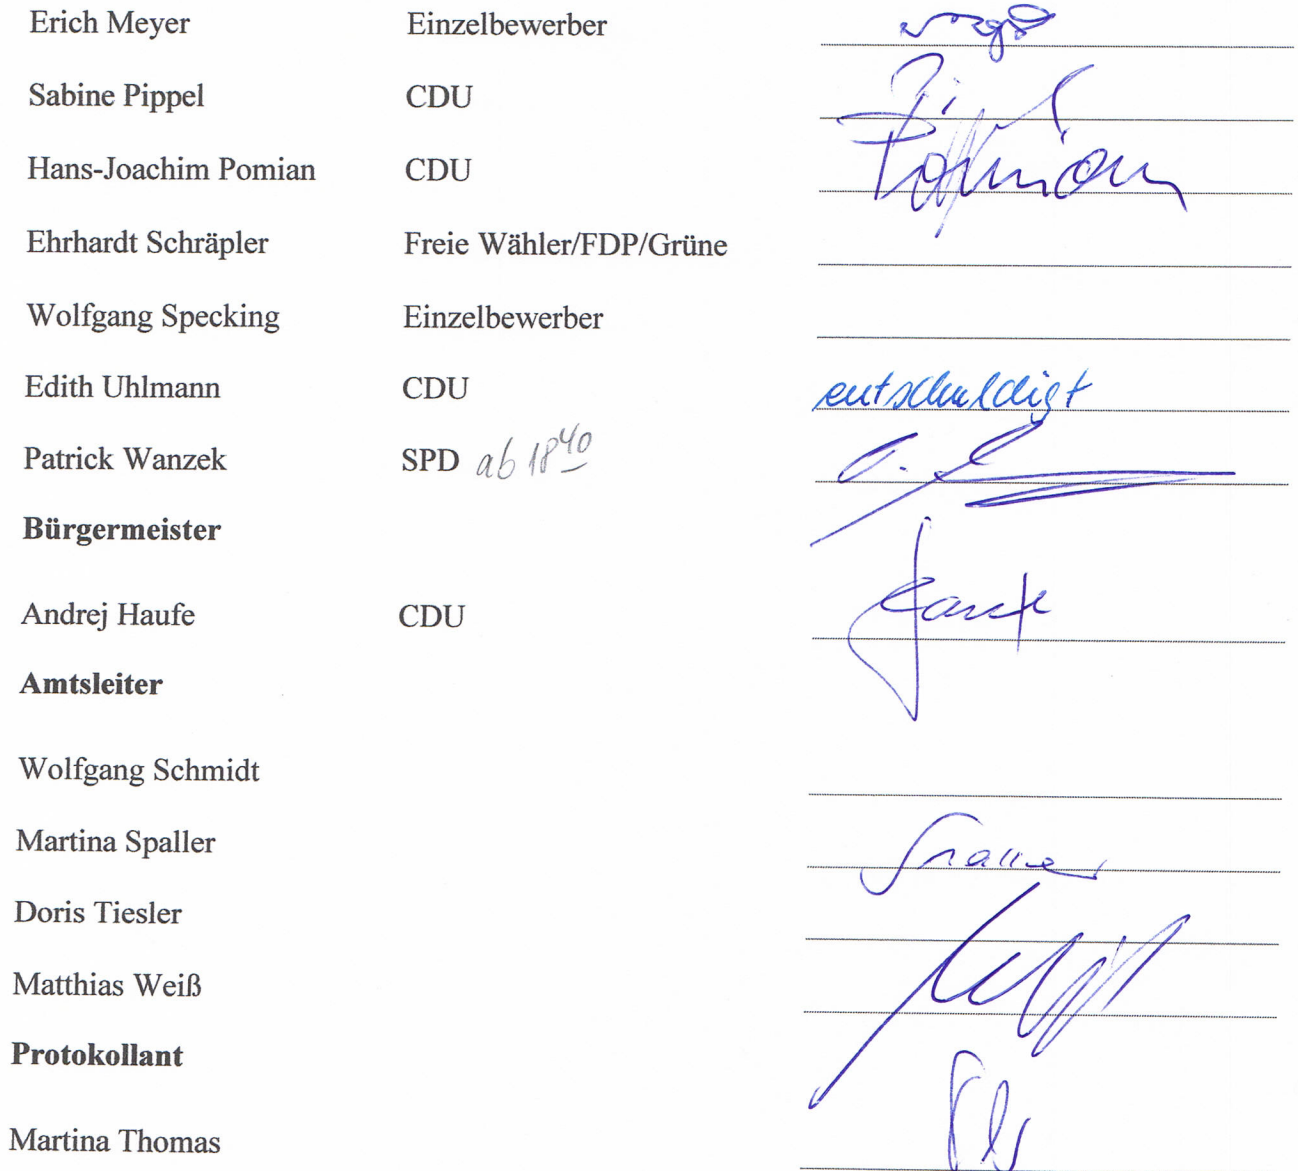 Erich Meyer Einzelbewerber
Sabine Pippel CDU
Hans-Joachim Pomian CDU Pomian
Ehrhardt Schräpler Freie Wähler/FDP/Grüne
Wolfgang Specking Einzelbewerber
Edith Uhlmann CDU entschuldigt
Patrick Wanzek SPD ab 18⁴⁰
Bürgermeister
Andrej Haufe CDU
Amtsleiter
Wolfgang Schmidt
Martina Spaller
Doris Tiesler
Matthias Weiß
Protokollant
Martina Thomas